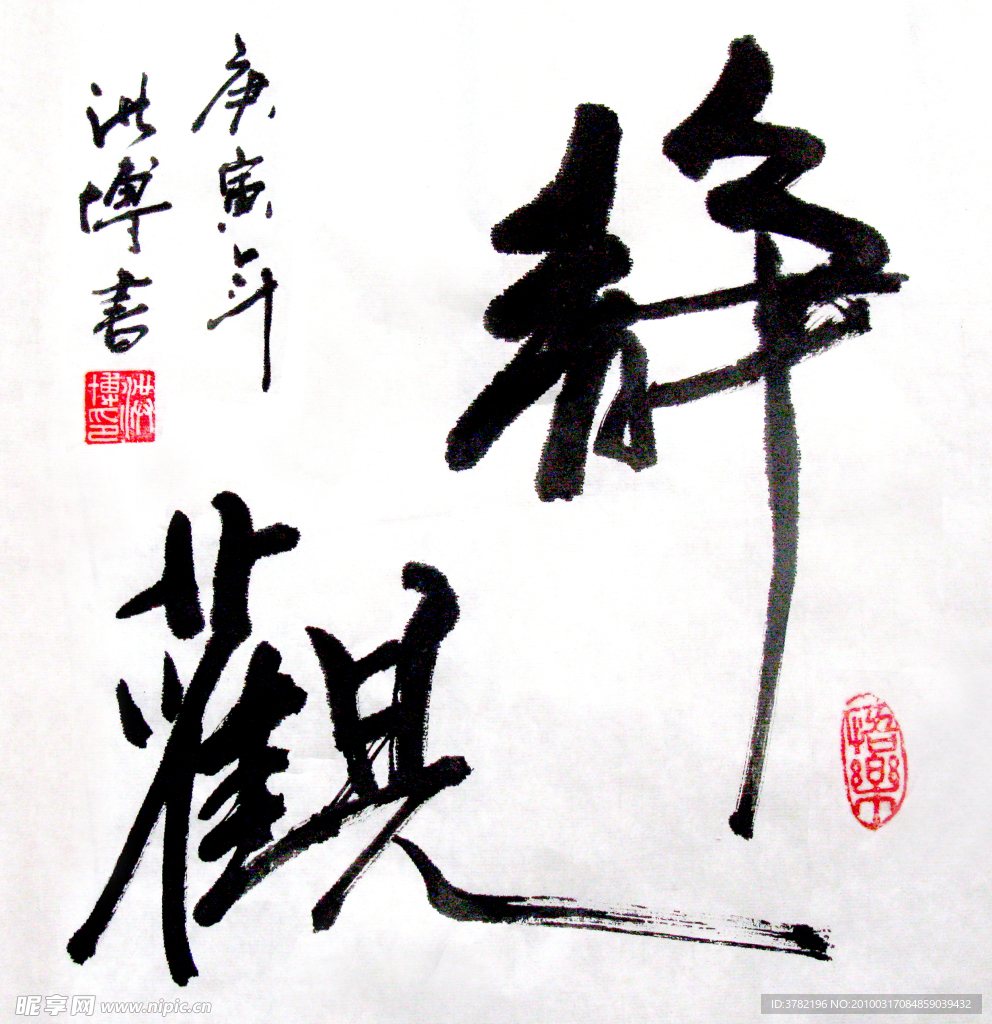 靜
觀
庚寅年
洪博書
洪博印
悟樂
昵享网 www.nipic.cn
ID:3782196 NO:20100317084859039432